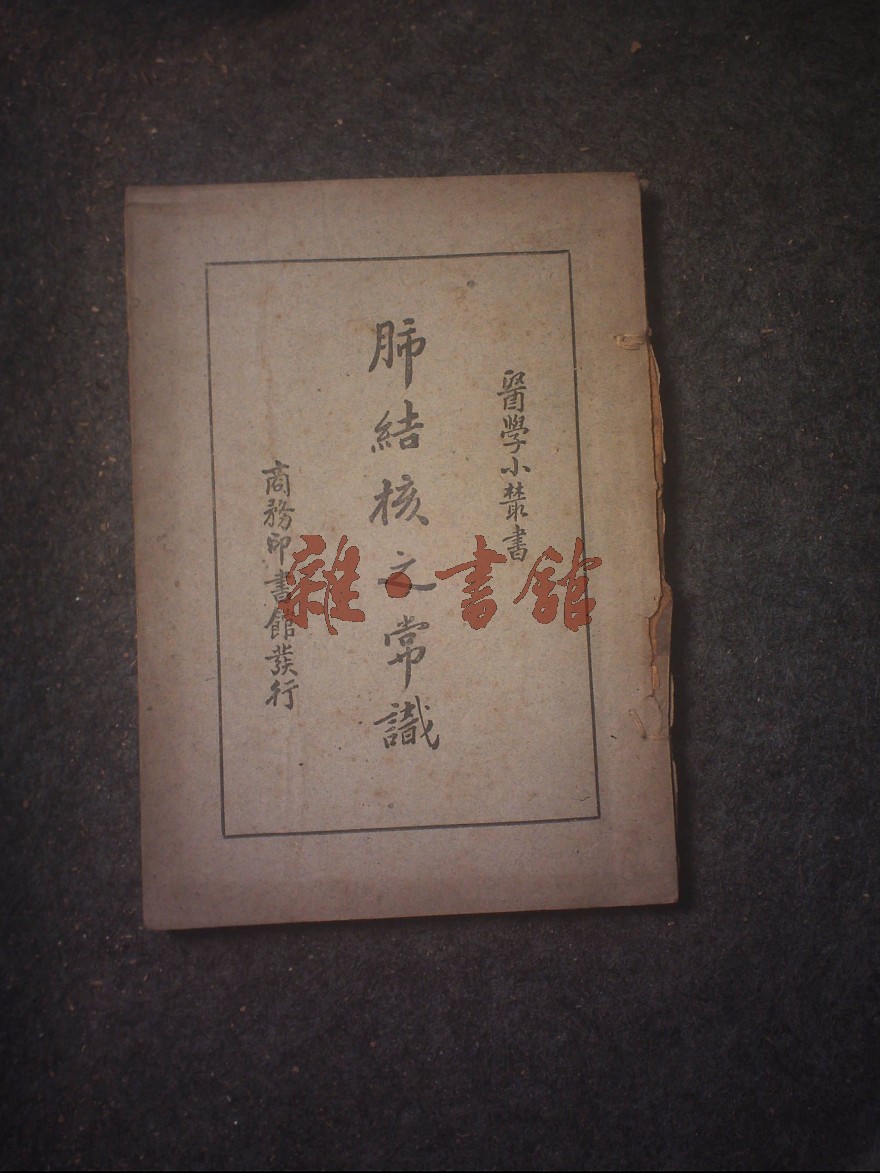 醫學小叢書
肺結核之常識
商務印書館發行
雜·書館